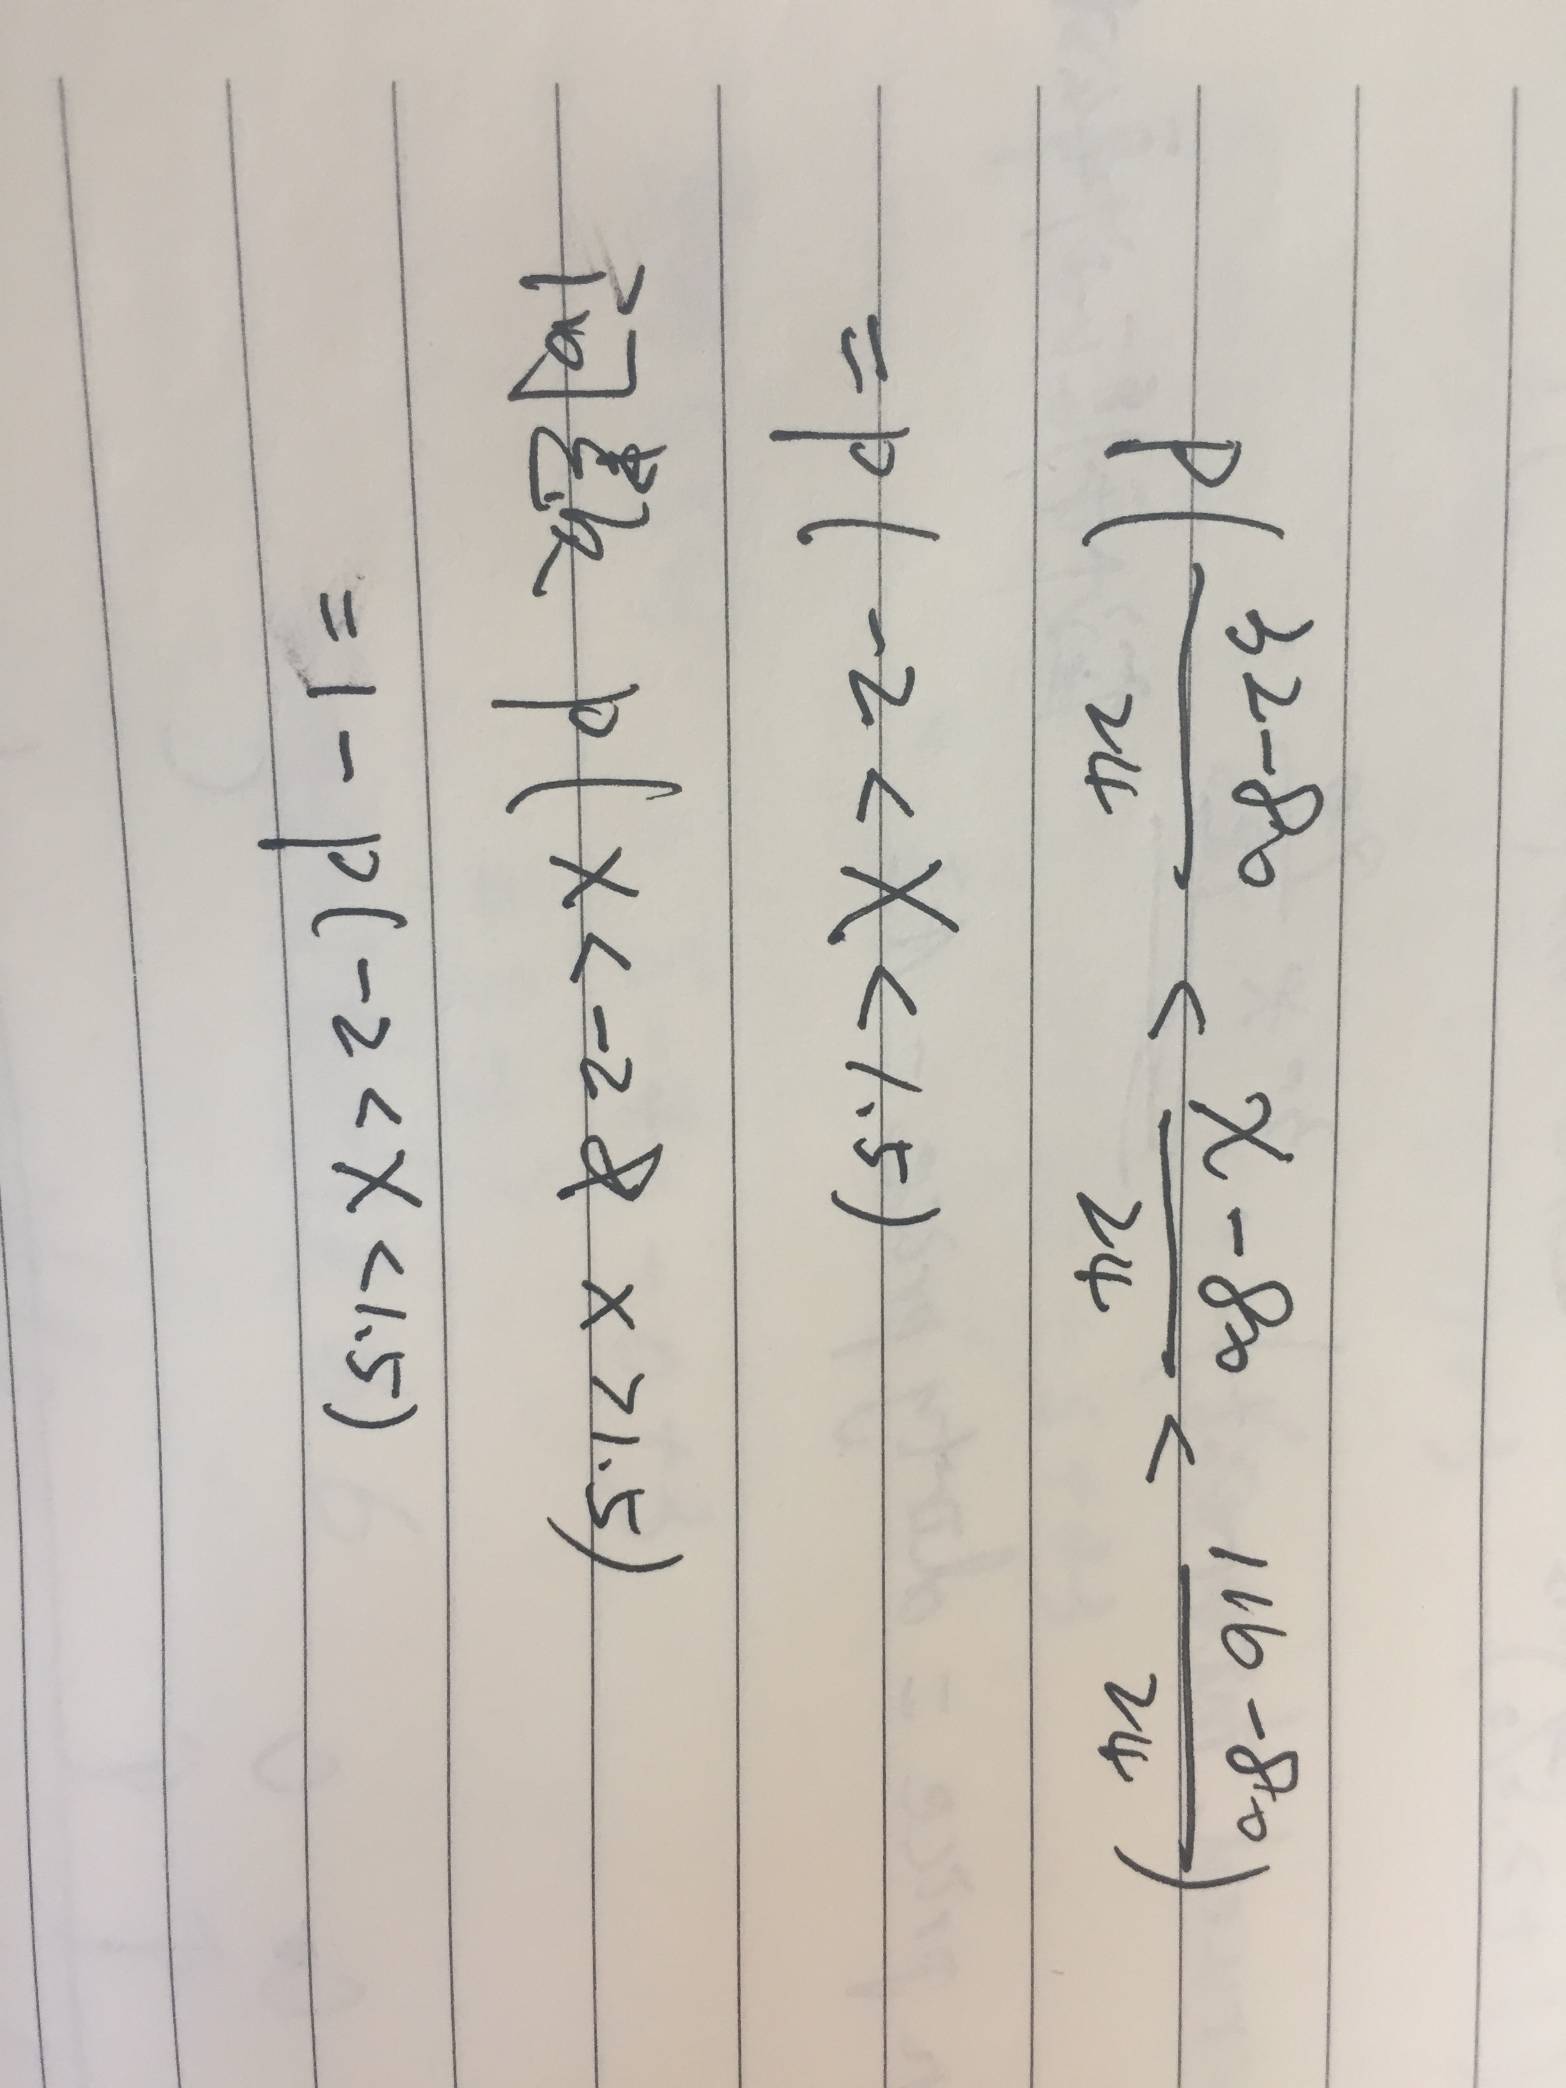 P( 32-80/24 < x-80/24 < 116-80/24 )
= P( -2 < X < 1.5)
问题 P( X < -2 & X > 1.5)
= 1 - P( -2 < X < 1.5)